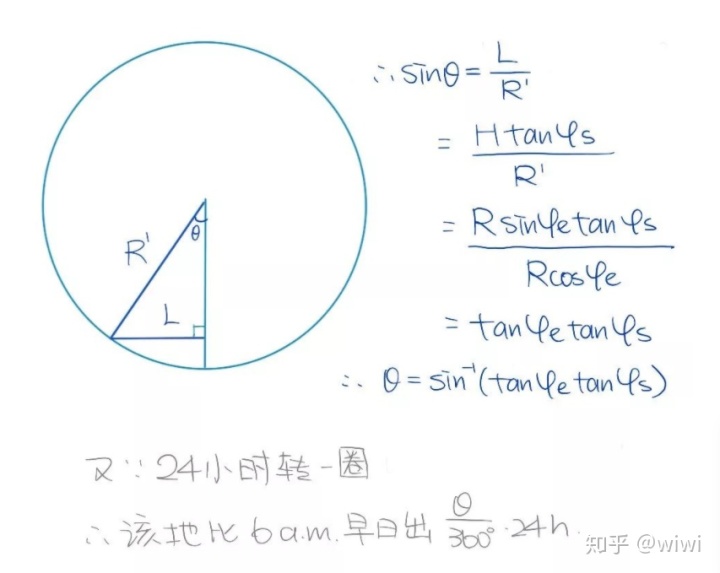 ∴ sinθ = L/R'
= Htanφs/R'
= Rsinφe tanφs/Rcosφe
= tanφe tanφs
∴ θ = sin⁻¹(tanφe tanφs)
R'
θ
L
又∵ 24小时转一圈
∴ 该地比 6 a.m. 早日出 θ/360° · 24h.
知乎 @wiwi